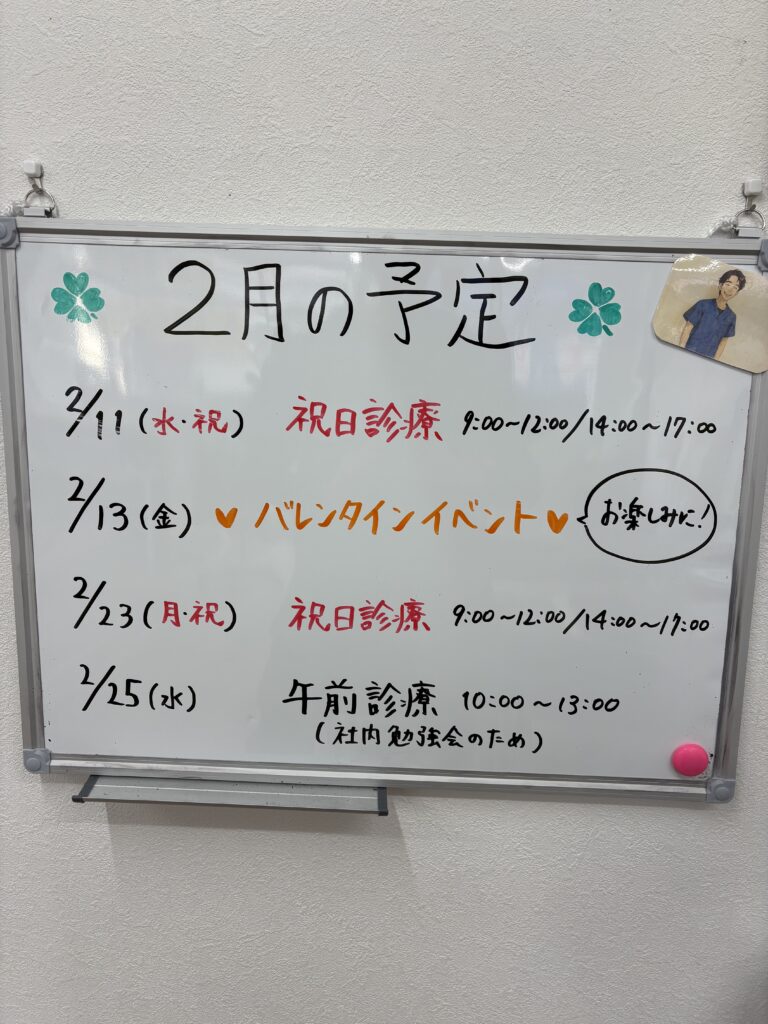 2月の予定
2/11(水・祝) 祝日診療 9:00~12:00/14:00~17:00
2/13(金) ♥バレンタインイベント♥ お楽しみに!
2/23(月・祝) 祝日診療 9:00~12:00/14:00~17:00
2/25(水) 午前診療 10:00~13:00
(社内勉強会のため)